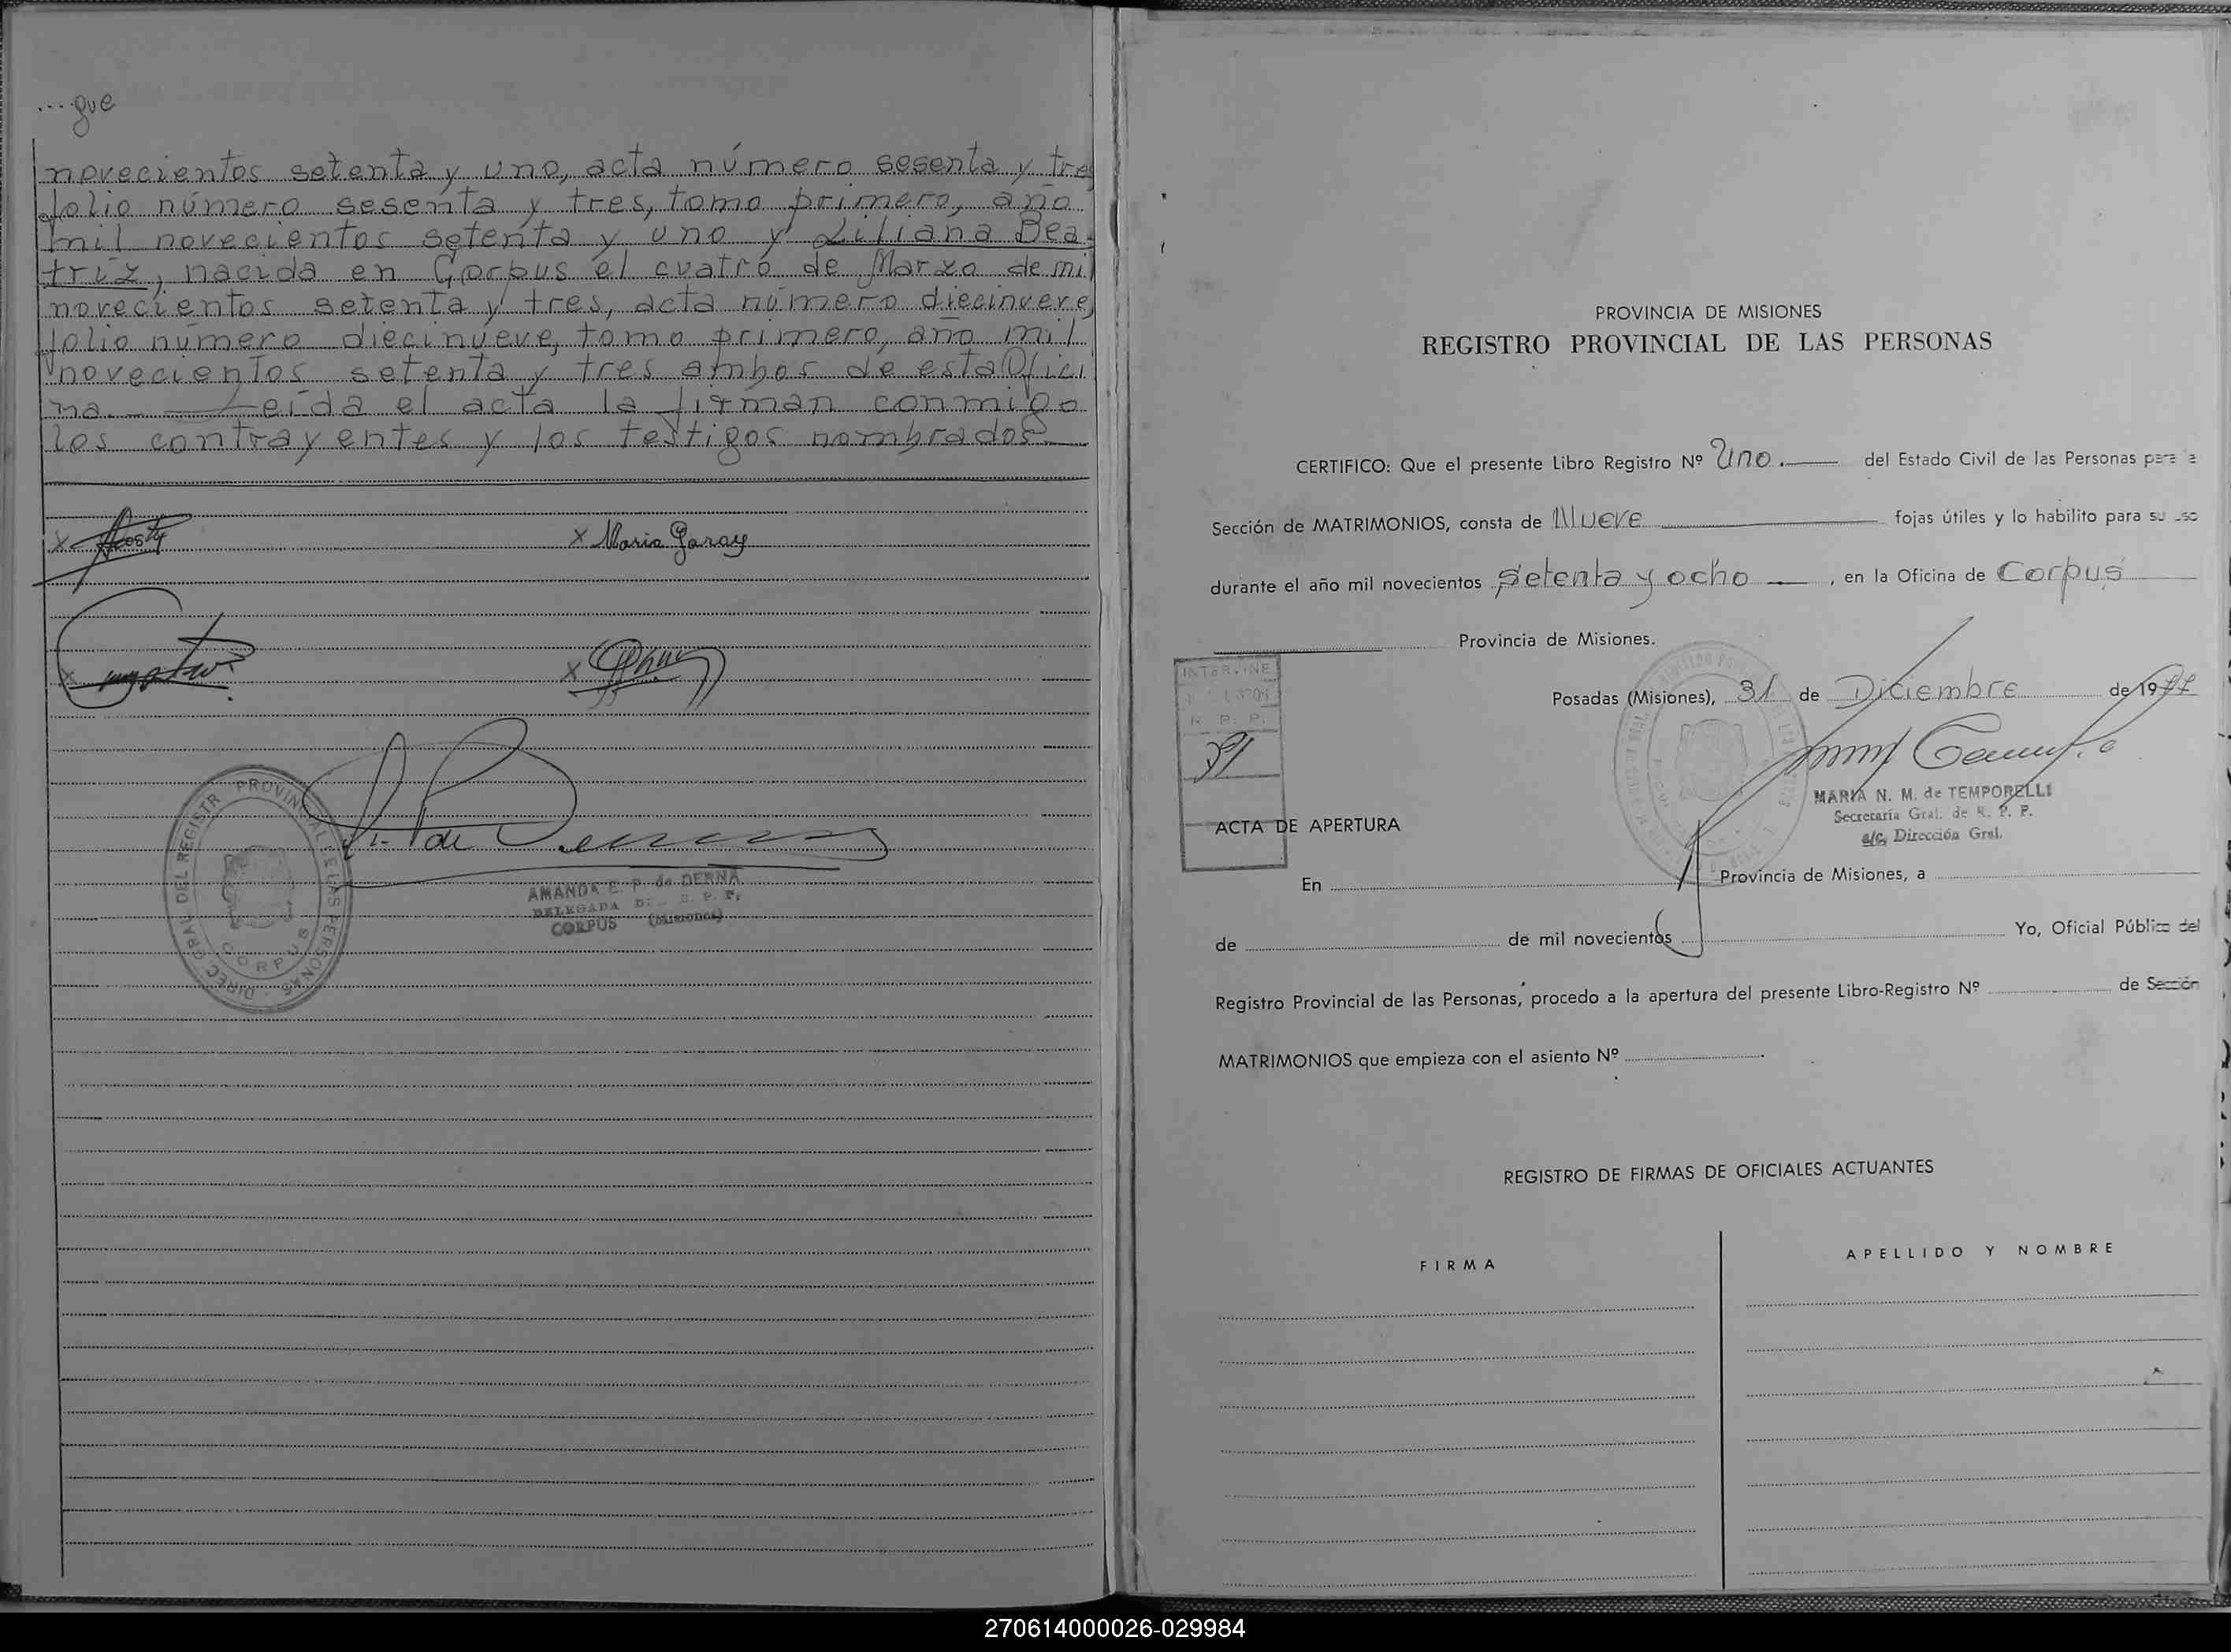 ....gue
novecientos setenta y uno, acta número sesenta y tres
folio número sesenta y tres, tomo primero, año
mil novecientos setenta y uno y Liliana Bea-
triz, nacida en Corpus el cuatro de Marzo de mil
novecientos setenta y tres, acta número diecinueve,
folio número diecinueve, tomo primero, año mil
novecientos setenta y tres ambos de esta Ofici
na. — Leída el acta la firman conmigo
los contrayentes y los testigos nombrados
x Acosta
x Maria Garay
x
x
DIREC. GRAL DEL REGISTR PROVINCIAL DE LAS PERSONAS
CORPUS
AMANDA E. P. de DERNA
DELEGADA DEL R. P. P.
CORPUS (Misiones)
PROVINCIA DE MISIONES
REGISTRO PROVINCIAL DE LAS PERSONAS
CERTIFICO: Que el presente Libro Registro Nº Uno.— del Estado Civil de las Personas para la
Sección de MATRIMONIOS, consta de Nueve fojas útiles y lo habilito para su uso
durante el año mil novecientos Setenta y ocho —, en la Oficina de Corpus
Provincia de Misiones.
INTERVINE
R. P. P.
Posadas (Misiones), 31 de Diciembre de 1977
MARIA N. M. de TEMPORELLI
Secretaria Gral. de R. P. P.
a/c. Dirección Gral.
ACTA DE APERTURA
En Provincia de Misiones, a
de de mil novecientos Yo, Oficial Público del
Registro Provincial de las Personas, procedo a la apertura del presente Libro-Registro Nº de Sección
MATRIMONIOS que empieza con el asiento Nº .
REGISTRO DE FIRMAS DE OFICIALES ACTUANTES
FIRMA
APELLIDO Y NOMBRE
270614000026-029984